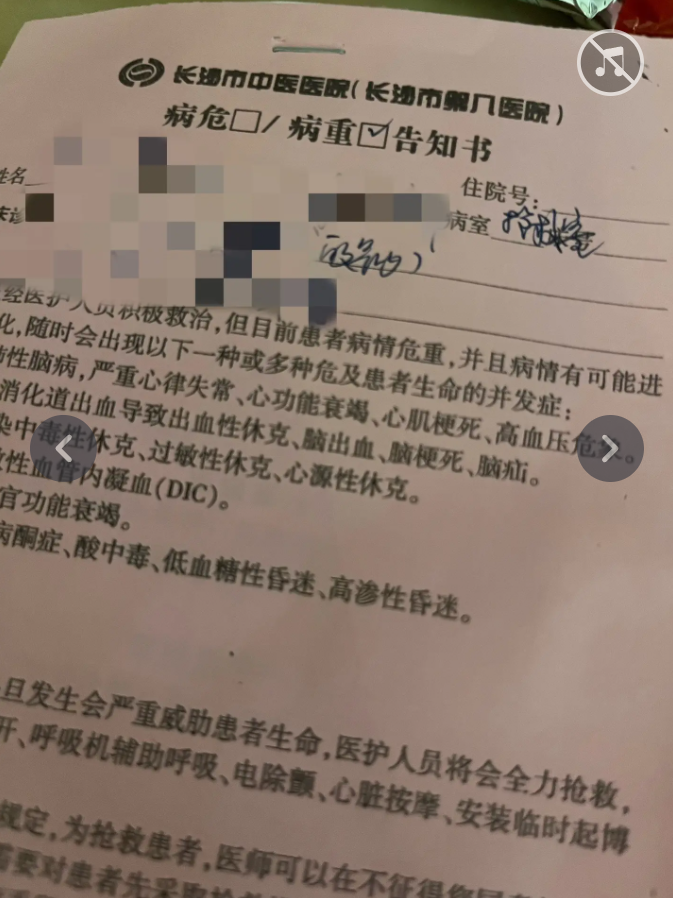 长沙市中医医院(长沙市第八医院)
病危□/病重☑告知书
姓名
住院号:
病室 抢救室
经医护人员积极救治,但目前患者病情危重,并且病情有可能进
化,随时会出现以下一种或多种危及患者生命的并发症:
肺性脑病,严重心律失常、心功能衰竭、心肌梗死、高血压危象。
消化道出血导致出血性休克、脑出血、脑梗死、脑疝。
染中毒性休克、过敏性休克、心源性休克。
性血管内凝血(DIC)。
官功能衰竭。
病酮症、酸中毒、低血糖性昏迷、高渗性昏迷。
旦发生会严重威胁患者生命,医护人员将会全力抢救,
开、呼吸机辅助呼吸、电除颤、心脏按摩、安装临时起博
规定,为抢救患者,医师可以在不征得您同
需要对患者先采取抢